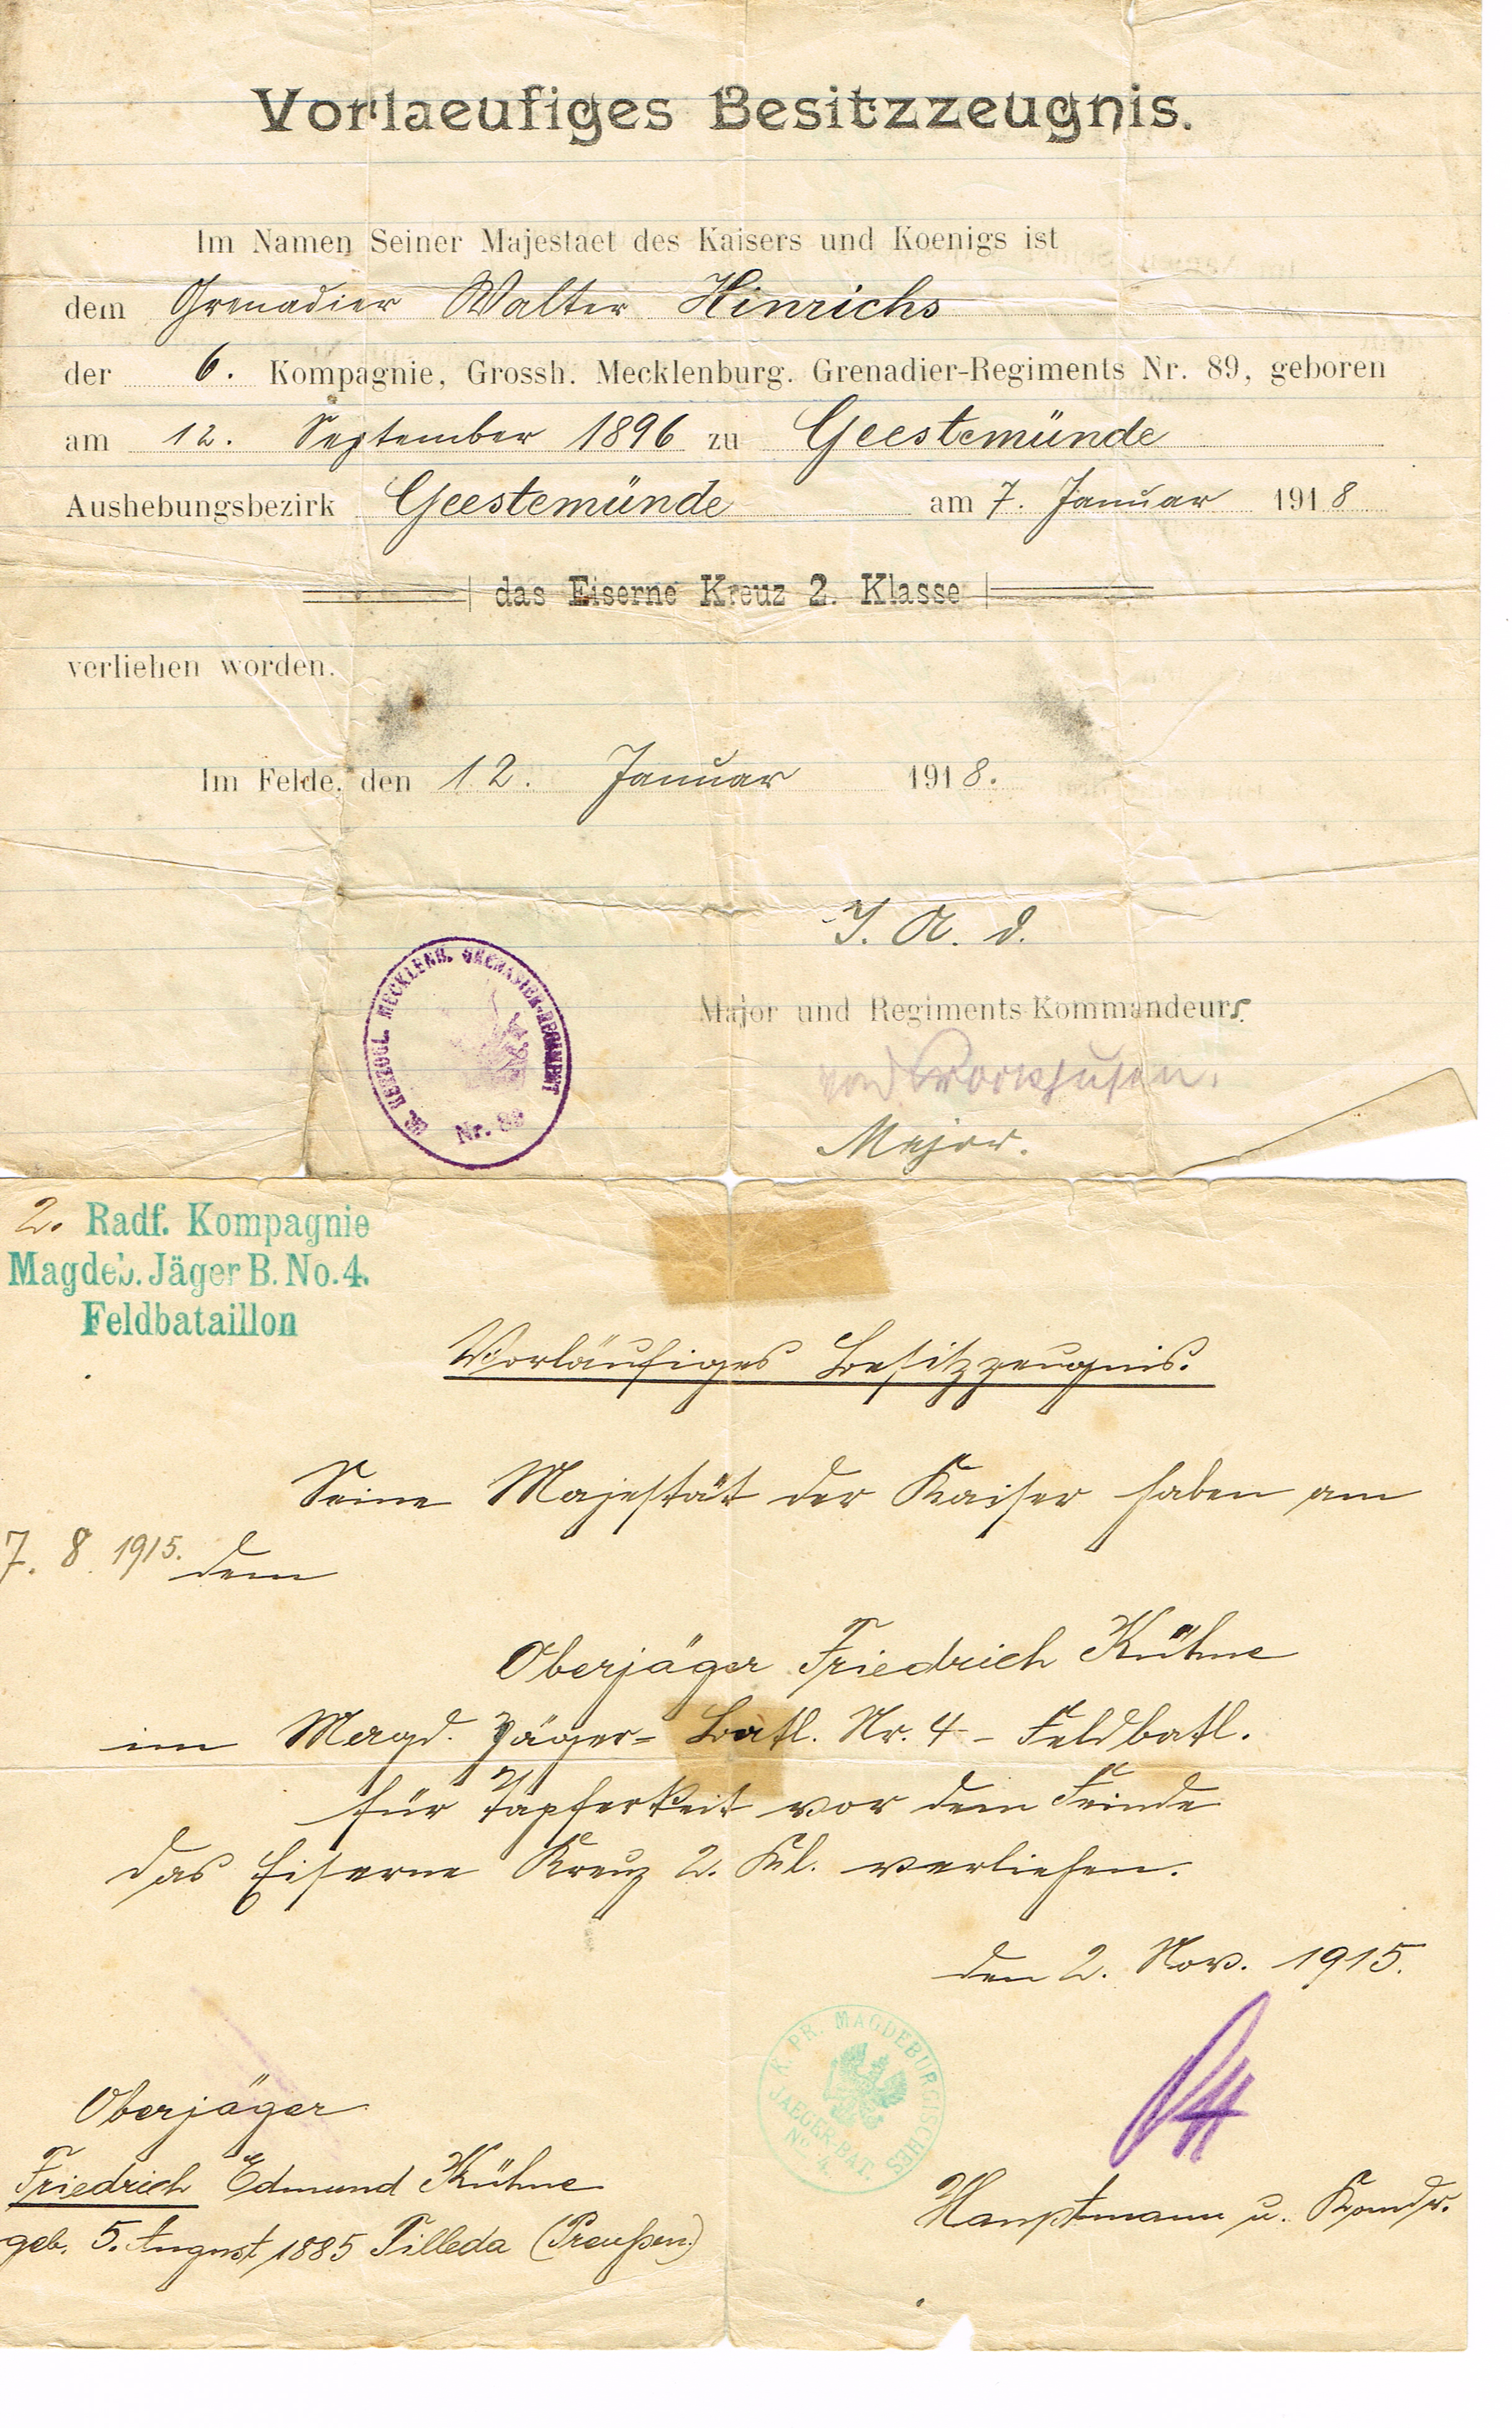 Vorlaeufiges Besitzzeugnis.
Im Namen Seiner Majestaet des Kaisers und Koenigs ist
dem Grenadier Walter Hinrichs
der 6. Kompagnie, Grossh. Mecklenburg. Grenadier-Regiments Nr. 89, geboren
am 12. September 1896 zu Geestemünde
Aushebungsbezirk Geestemünde am 7. Januar 1918
das Eiserne Kreuz 2. Klasse
verliehen worden.
Im Felde, den 12. Januar 1918.
I. A. d.
Major und Regiments-Kommandeurs.
GR. HERZOGL. MECKLENB. GRENADIER-REGIMENT
Nr. 89
Major.
2. Radf. Kompagnie
Magdeb. Jäger B. No. 4.
Feldbataillon
Vorläufiges Besitzzeugnis.
Seine Majestät der Kaiser haben am
7. 8. 1915. dem
Oberjäger Friedrich Kühne
im Magd. Jäger- Batl. Nr. 4 - Feldbatl.
für Tapferkeit vor dem Feinde
das Eiserne Kreuz 2. Kl. verliehen.
den 2. Nov. 1915.
K. PR. MAGDEBURGISCHES
JAEGER-BAT.
No. 4.
Oberjäger
Friedrich Edmund Kühne
geb. 5. August 1885 Tilleda (Preußen)
Hauptmann u. Komdr.